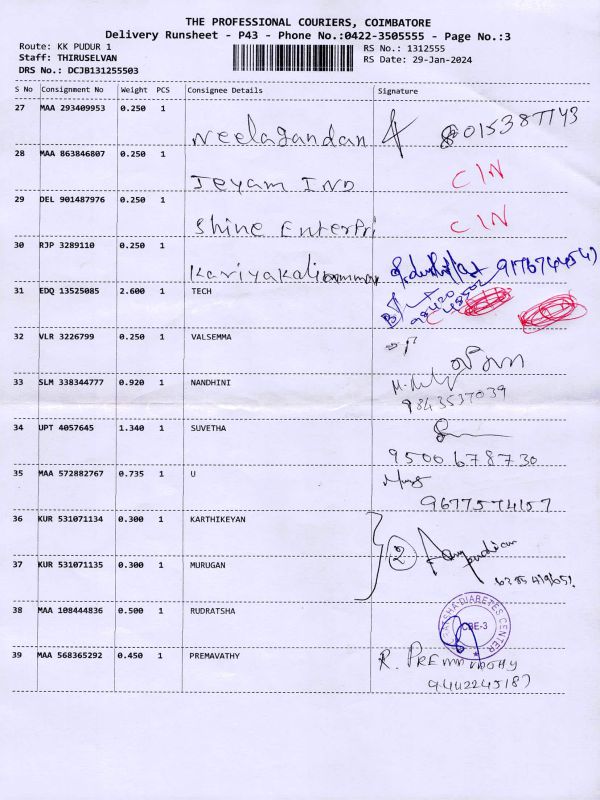 THE PROFESSIONAL COURIERS, COIMBATORE
Delivery Runsheet - P43 - Phone No.:0422-3505555 - Page No.:3
Route: KK PUDUR 1 RS No.: 1312555
Staff: THIRUSELVAN RS Date: 29-Jan-2024
DRS No.: DCJB131255503
S No Consignment No Weight PCS Consignee Details Signature
27 MAA 293409953 0.250 1 Neelagandan
28 MAA 863846807 0.250 1 Jeyam IND CIN
29 DEL 901487976 0.250 1 Shine Enterpri CIN
30 RJP 3289110 0.250 1
31 EDQ 13525085 2.600 1 TECH
32 VLR 3226799 0.250 1 VALSEMMA
33 SLM 338344777 0.920 1 NANDHINI 9843537039
34 UPT 4057645 1.340 1 SUVETHA
9500678730
35 MAA 572882767 0.735 1 U
9677574157
36 KUR 531071134 0.300 1 KARTHIKEYAN 2
37 KUR 531071135 0.300 1 MURUGAN
38 MAA 108444836 0.500 1 RUDRATSHA DIABETES CENTER CBE-3
39 MAA 568365292 0.450 1 PREMAVATHY R.
9442245187